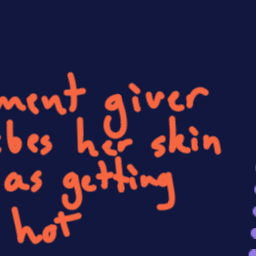 ment giver
bes her skin
as getting
hot